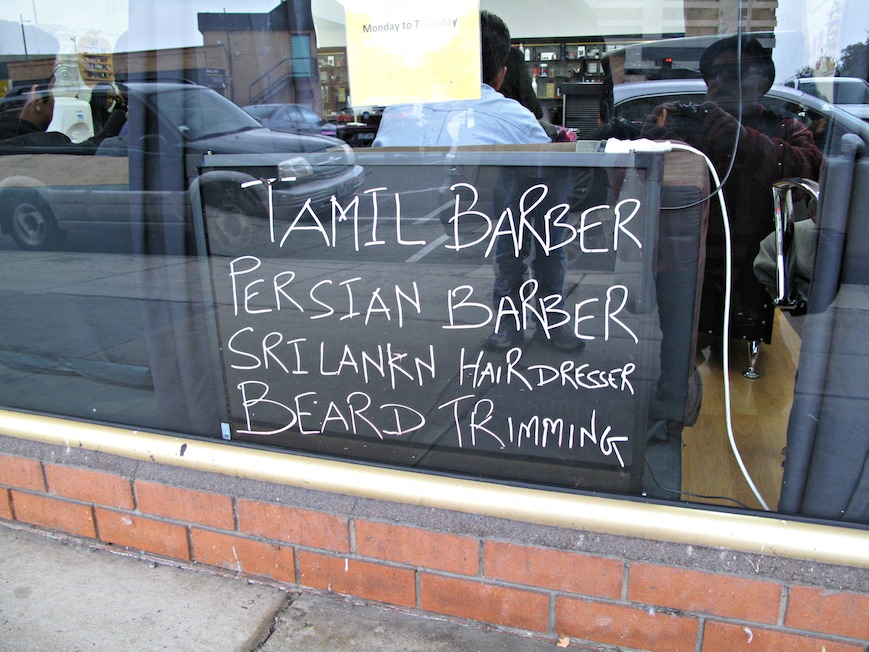 Monday to Thursday
TAMIL BARBER
PERSIAN BARBER
SRILANKN HAIRDRESSER
BEARD TRIMMING